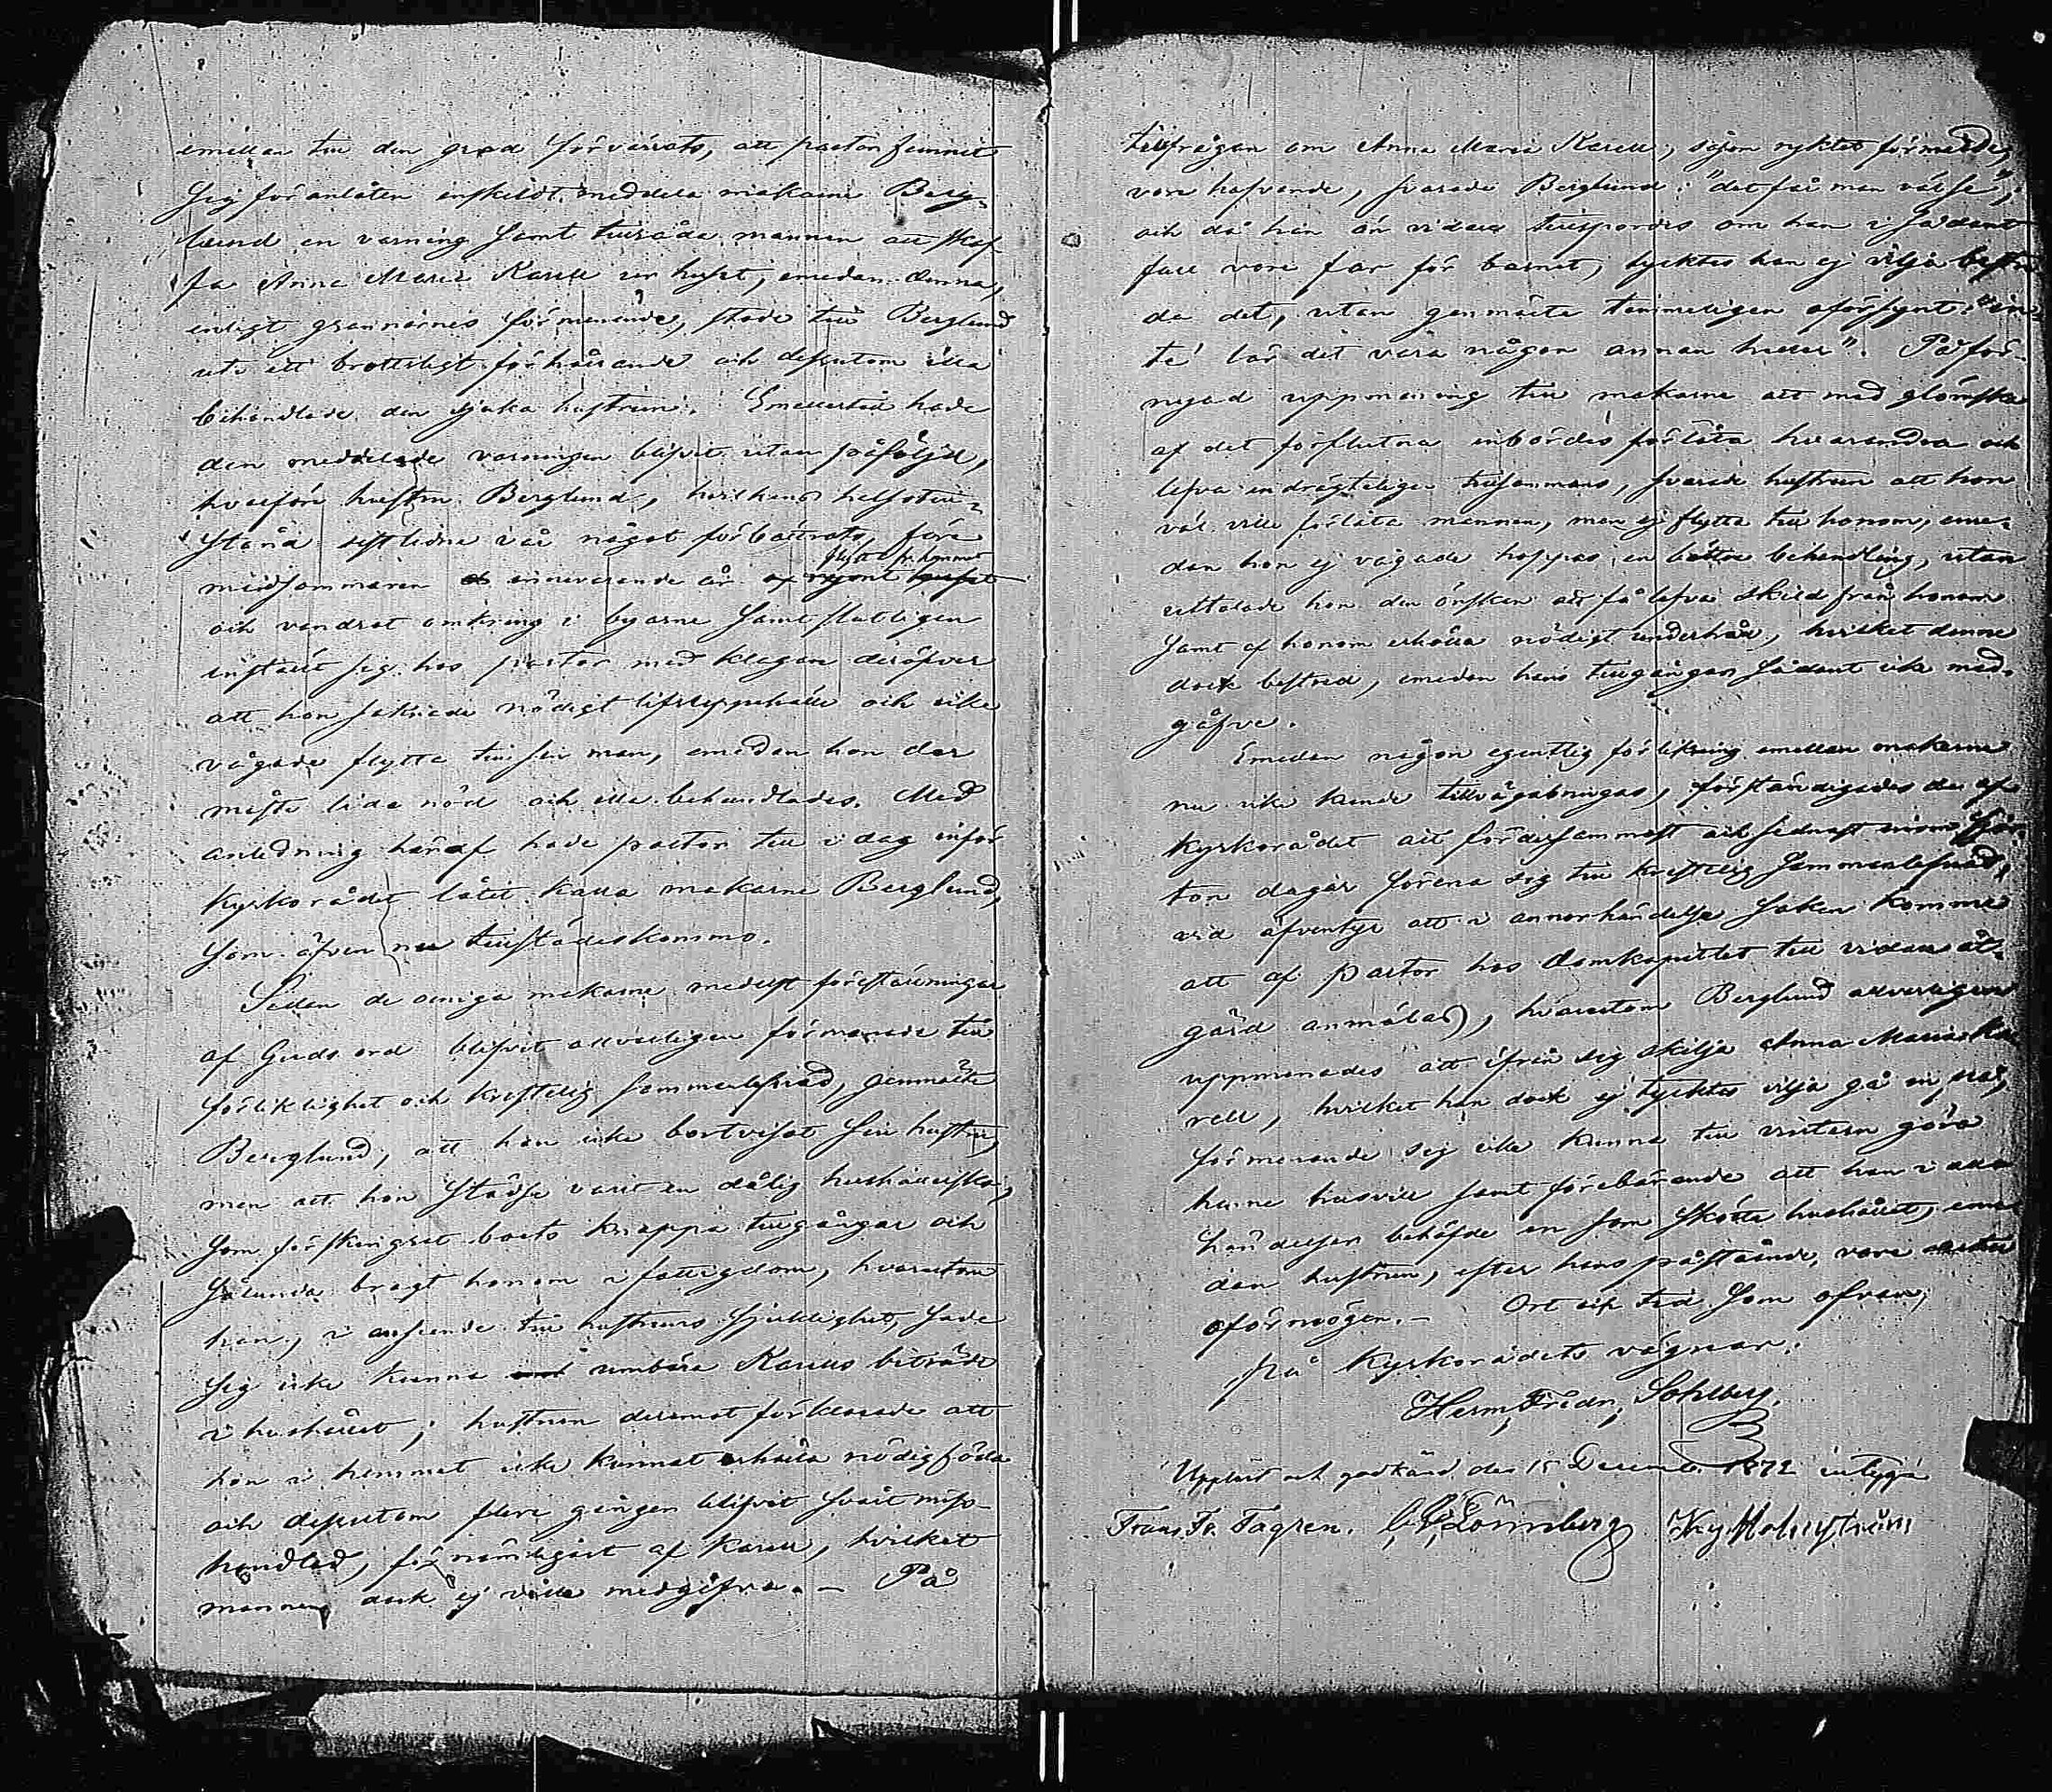 emellan till den grad förvärrats, att pastor funnit
sig föranlåten enskildt meddela makarne Berg-
lund en varning samt tillråda mannen att skaf-
fa Anna Maria Karell ur huset, emedan denna,
enligt grannarnes förmenande, stode till Berglund
uti ett brottsligt förhållande och dessutom illa
behandlade den sjuka hustrun. Emellertid hade
den meddelade varningen blifvit utan påföljd,
hvarför hustru Berglund, hvilkens helsotill-
stånd sistlidne vår något förbättrats, före
midsommaren innevarande år flytt fr. hemmet
och vandrat omkring i byarne samt slutligen
instält sig hos pastor med klagan deröfver
att hon saknade nödigt lifsuppehälle och icke
vågade flytta till sin man, emedan hon der
måste lida nöd och illa behandlades. Med
anledning häraf hade pastor till i dag inför
Kyrkorådet låtit kalla makarne Berglund,
som äfven nu tillstädeskommo.
Sedan de oeniga makarne medelst föreställningar
af Guds ord blifvit allvarligen förmanade till
förliklighet och kristelig sammanlefnad, genmälte
Berglund, att han icke bortvisat sin hustru,
men att hon städse varit en dålig hushållerska,
som förskingrat bort knappa tillgångar och
sålunda bragt honom i fattigdom, hvarutom
han, i anseende till hustruns sjuklighet, sade
sig icke kunna umbära Karells biträde
i hushållet; hustrun deremot förklarade att
hon i hemmet icke kunnat erhålla nödig föda
och dessutom flere gånger blifvit svårt miss-
handlad, förnämligast af Karell, hvilket
mannen dock ej ville medgifva. – På
tillfrågan om Anna Maria Karell, såsom ryktet förmälde,
vore hafvande, svarade Berglund: "det får man väl se",
och då han än vidare tillspordes om han i sådant
fall vore far för barnet, tycktes han ej vilja bestri-
da det, utan genmälte temmeligen oförsynt: "in-
te lär det vara någon annan heller". På för-
nyad uppmaning till makarne att med glömska
af det förflutna inbördes förlåta hvarandra och
lefva endrägteligen tillsammans, svarade hustrun att hon
väl ville förlåta mannen, men ej flytta till honom, eme-
dan hon ej vågade hoppas en bättre behandling, utan
uttalade hon den önskan att få lefva skild från honom
samt af honom erhålla nödigt underhåll, hvilket denne
dock bestred, emedan hans tillgångar sådant icke med-
gåfve.
Emedan någon egentlig förlikning emellan makarne
nu icke kunde tillvägabringas, förständigades de af
Kyrkorådet att fördersammast och sednast inom fjor-
ton dagar förena sig till kristelig sammanlefnad,
vid äfventyr att i annor händelse saken komme
att af pastor hos Domkapitlet till vidare åt-
gärd anmälas, hvarutom Berglund allvarligen
uppmanades att ifrån sig skilja Anna Maria Ka-
rell, hvilket han dock ej tycktes vilja gå in på,
förmenande sig icke kunna till vintern göra
henne husvill samt förebärande att han i alla
händelser behöfde en som skötte hushållet, eme-
dan hustrun, efter hans påstående, vore dertill
oförmögen. – Ort och tid som ofvan;
på Kyrkorådets vägnar:
Herm. Fredr. Sohlberg.
Uppläst och godkänd den 15 December 1872 intyga
Frans Fr. Fagren. C. G. Lönnberg